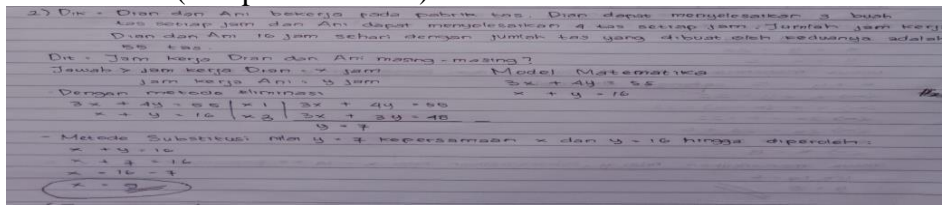 2) Dik = Dian dan Ani bekerja pada pabrik tas. Dian dapat menyelesaikan 3 buah
tas setiap jam dan Ani dapat menyelesaikan 4 tas setiap jam. Jumlah jam kerj
Dian dan Ani 16 jam sehari dengan jumlah tas yang dibuat oleh keduanya adalah
55 tas.
Dit = Jam kerja Dian dan Ani masing-masing?
Jawab > jam kerja Dian = x jam Model Matematika
jam kerja Ani = y jam 3x + 4y = 55
Dengan metode eliminasi x + y = 16
3x + 4y = 55 | x 1 | 3x + 4y = 55
x + y = 16 | x 3 | 3x + 3y = 48 -
y = 7
- Metode Substitusi nilai y = 7 kepersamaan x dan y = 16 hingga diperoleh:
x + y = 16
x + 7 = 16
x = 16 - 7
x = 9